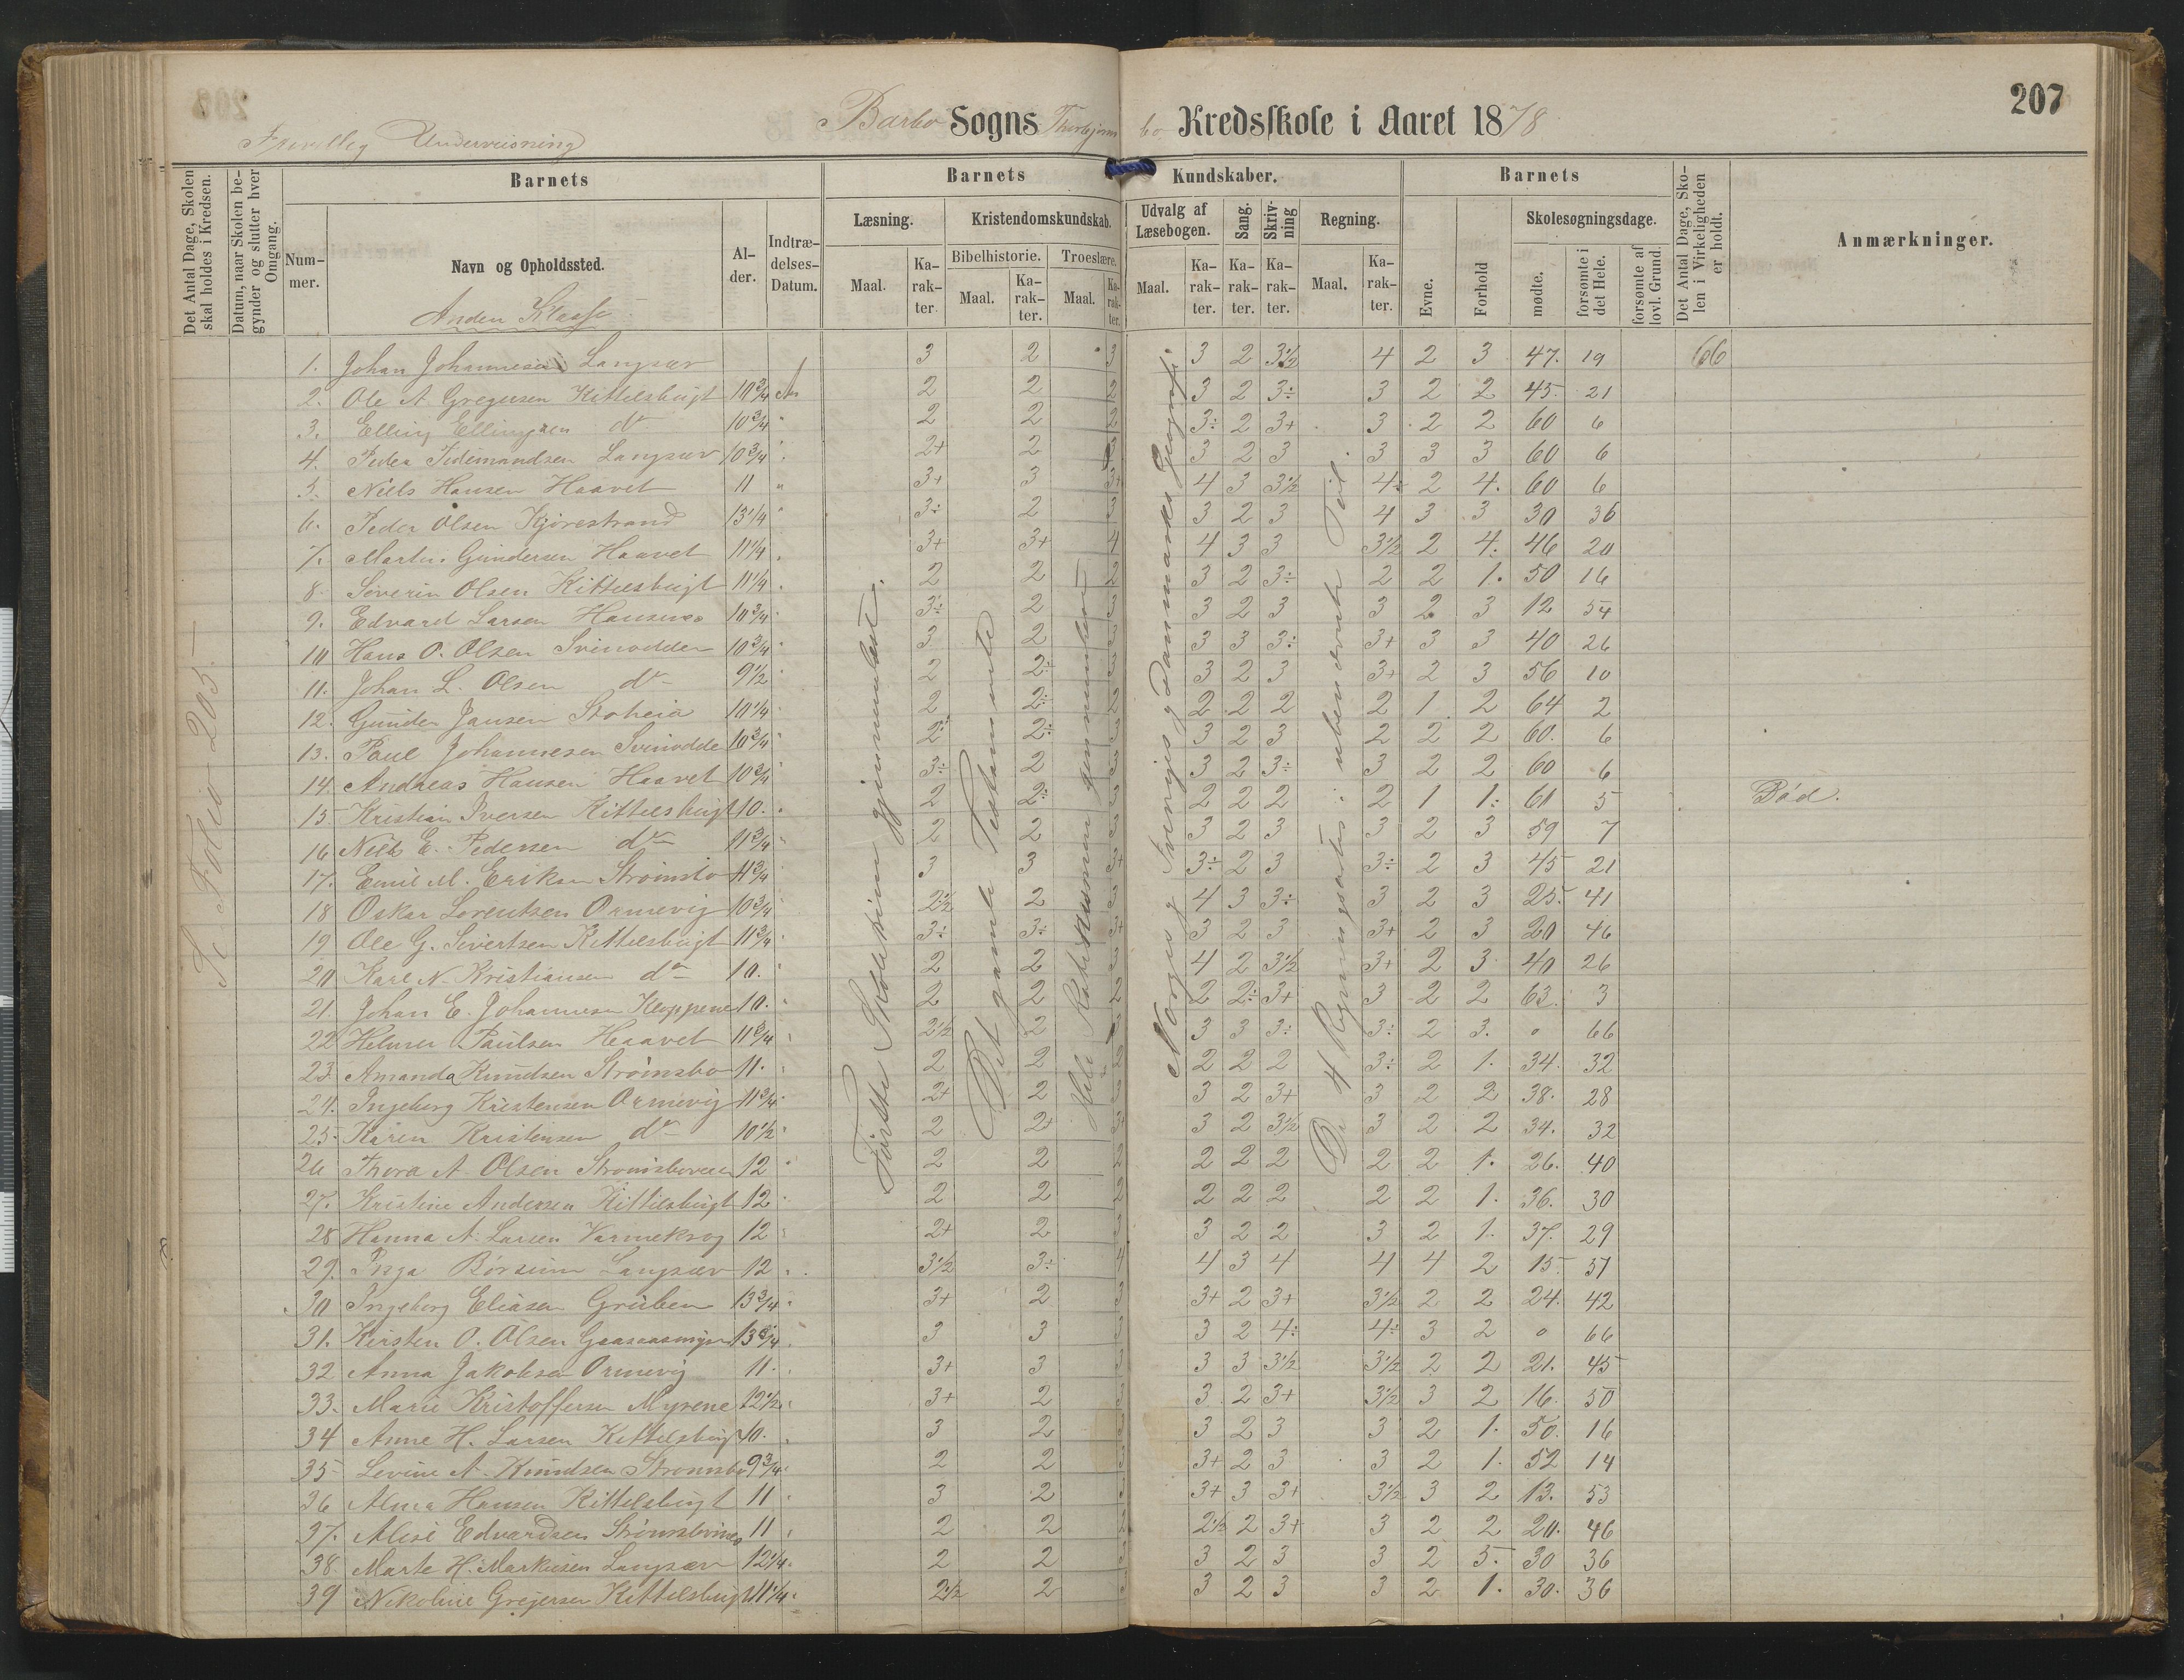 207
Barbo Sogns Thorbjørns bo Kredsskole i Aaret 1878
Frivillig Underviisning
Det Antal Dage, Skolen skal holdes i Kredsen.
Datum, naar Skolen begynder og slutter hver Omgang.
Barnets
Nummer.
Navn og Opholdssted.
Alder.
Indtrædelses-Datum.
Barnets Kundskaber.
Læsning.
Maal.
Karakter.
Kristendomskundskab.
Bibelhistorie.
Maal.
Karakter.
Troeslære.
Maal.
Karakter.
Udvalg af Læsebogen.
Maal.
Karakter.
Sang.
Karakter.
Skrivning
Karakter.
Regning.
Maal.
Karakter.
Barnets
Evne.
Forhold
Skolesøgningsdage.
mødte.
forsømte i det Hele.
forsømte af lovl. Grund.
Det Antal Dage, Skolen i Virkeligheden er holdt.
Anmærkninger.
Anden Klasse
Se Folio 205
Første Skoletrin gjennemlæst.
Det gamle Testamente
Hele Katekismen gjennemlæst
Norges, Sveriges, Danmarks Geografi.
De 4 Regningsarter i ubenævnte Tal.
1. Johan Johannesen Langsæv 3 2 3 3 2 3½ 4 2 3 47. 19 66
2. Ole A Gregersen Kittelsbugt 10¾ 2 2 2 3 2 3÷ 3 2 2 45. 21
3. Elling Ellingsen do 10¾ " 2 2 2 3÷ 2 3+ 3 2 2 60 6
4. Peder Tidemandsen Langsæv 10¾ " 2+ 2 3 3 2 3 3 3 3 60 6
5. Niels Hansen Haavet 11 " 3+ 3 3+ 4 3 3½ 4÷ 2 4. 60 6
6. Peder Olsen Kjørestrand 13¼ " 3÷ 2 3 3 2 3 4 3 3 30 36
7. Martin Gundersen Haavet 11¼ " 3+ 3+ 4 4 3 3 3½ 2 4. 46 20
8. Severin Olsen Kittelsbugt 11¼ " 2 2 2 3 2 3÷ 2 2 1. 50 16
9. Edvard Larsen 10¾ " 3÷ 2 3 3 2 3 3 2 3 12 54
10 Hans O. Olsen Svinodden 10¾ " 3 2 3 3 3 3÷ 3+ 3 3 40 26
11. Johan L. Olsen do 9½ " 2 2÷ 3 3 2 3 3+ 2 3 56 10
12. Gunder Jansen Stoheia 10¼ " 2 2÷ 3 2 2 2 2 1 2 64 2
13. Paul Johannesen Svinodde 10¾ " 2÷ 2÷ 3 3 2 3 2 2 2 60. 6
14. Andreas Hansen Haavet 10¾ " 3÷ 2 3 3 2 3÷ 3 2 2 60 6
15 Kristian Iversen Kittelsbugt 10. " 2 2÷ 3 2 2 2 2 1 1÷ 61 5 Död.
16 Niels E. Pedersen do 11¾ " 2 2 3 3 2 3 3 2 3 59 7
17. Emil M. Eriksen Strømsbo 11¾ " 3 3 3+ 3÷ 2 3 3÷ 2 3 45 21
18 Oskar Lorentsen Ormevig 10¾ " 2½ 2 3 4 3 3÷ 3 2 3 25. 41
19 Ole G. Sivertsen Kittelsbugt 11¾ " 3÷ 3÷ 3+ 3 2 3 3+ 2 3 20 46
20 Karl N. Kristiansen do 10. " 2 2 3 4 2 3½ 3+ 2 3 40 26
21. Johan E. Johannesen Kloppene 10. " 2 2 2 2 2÷ 3+ 3 2 2 63. 3
22 Helmer Paulsen Haavet 11¾ " 2½ 2 2 3 3 3÷ 3÷ 2 3. 0 66
23. Amanda Knudsen Strømsbo 11. " 2 2 2 2 2 2 3÷ 2 1. 34. 32
24. Ingeborg Kristensen Ormevig 11¾ " 2+ 2 3 3 2 3+ 3 2 2 38. 28
25 Karen Kristensen do 10½ " 2 2+ 3+ 3 2 3½ 3 2 2 34. 32
26 Thora A. Olsen 12 " 2 2 2 2 2 2 2 2 1. 26. 40
27. Kristine Andersen Kittelsbugt 12 " 2 2 2 2 2 2 2 2 1. 36. 30
28 Hanna A. Larsen Varmekrog 12 " 2+ 2 3 3 2 2 3 2 1. 37. 29
29. Inga Børsum Langsæv 12 " 3½ 3÷ 4 4 3 4 4 4 2 15. 51
30 Ingeborg Eliasen Gruben 13¾ " 3+ 2 3 3+ 2 3+ 3½ 2 2 24. 42
31. Kirsten O. Olsen Gaasaasmyren 13¾ " 3 3 3 3 2 4÷ 4÷ 3 2 0 66
32 Anna Jakobsen Ormevig 11. " 3+ 3 3 3 3 3½ 3½ 2 2 21. 45
33. Marie Kristoffersen Myrene 12½ " 3+ 2 3 3 2 3+ 3½ 3 2 16. 50
34 Anne H. Larsen Kittelsbugt 10. " 3 2 3 3 2 3 3 2 1. 50. 16
35 Levine A. Knudsen Strømsbo 9¾ " 2 2 3 3+ 2 3 3 2 1. 52 14
36 Alma Hansen Kittelsbugt 11 " 3 2 3 3+ 3 3+ 3½ 3 2 13. 53
37. Alise Edvardsen 11 " 2 2 2 2½ 2 3+ 3 2 2 20. 46
38. Marte H. Markusen Langsæv 12¼ " 2 2 3 3 2 3 3 2 5. 30 36
39 Nikoline Grejersen Kittelsbugt 11¼ " 2½ 2 3 3 2 3 3 2 1. 30. 36